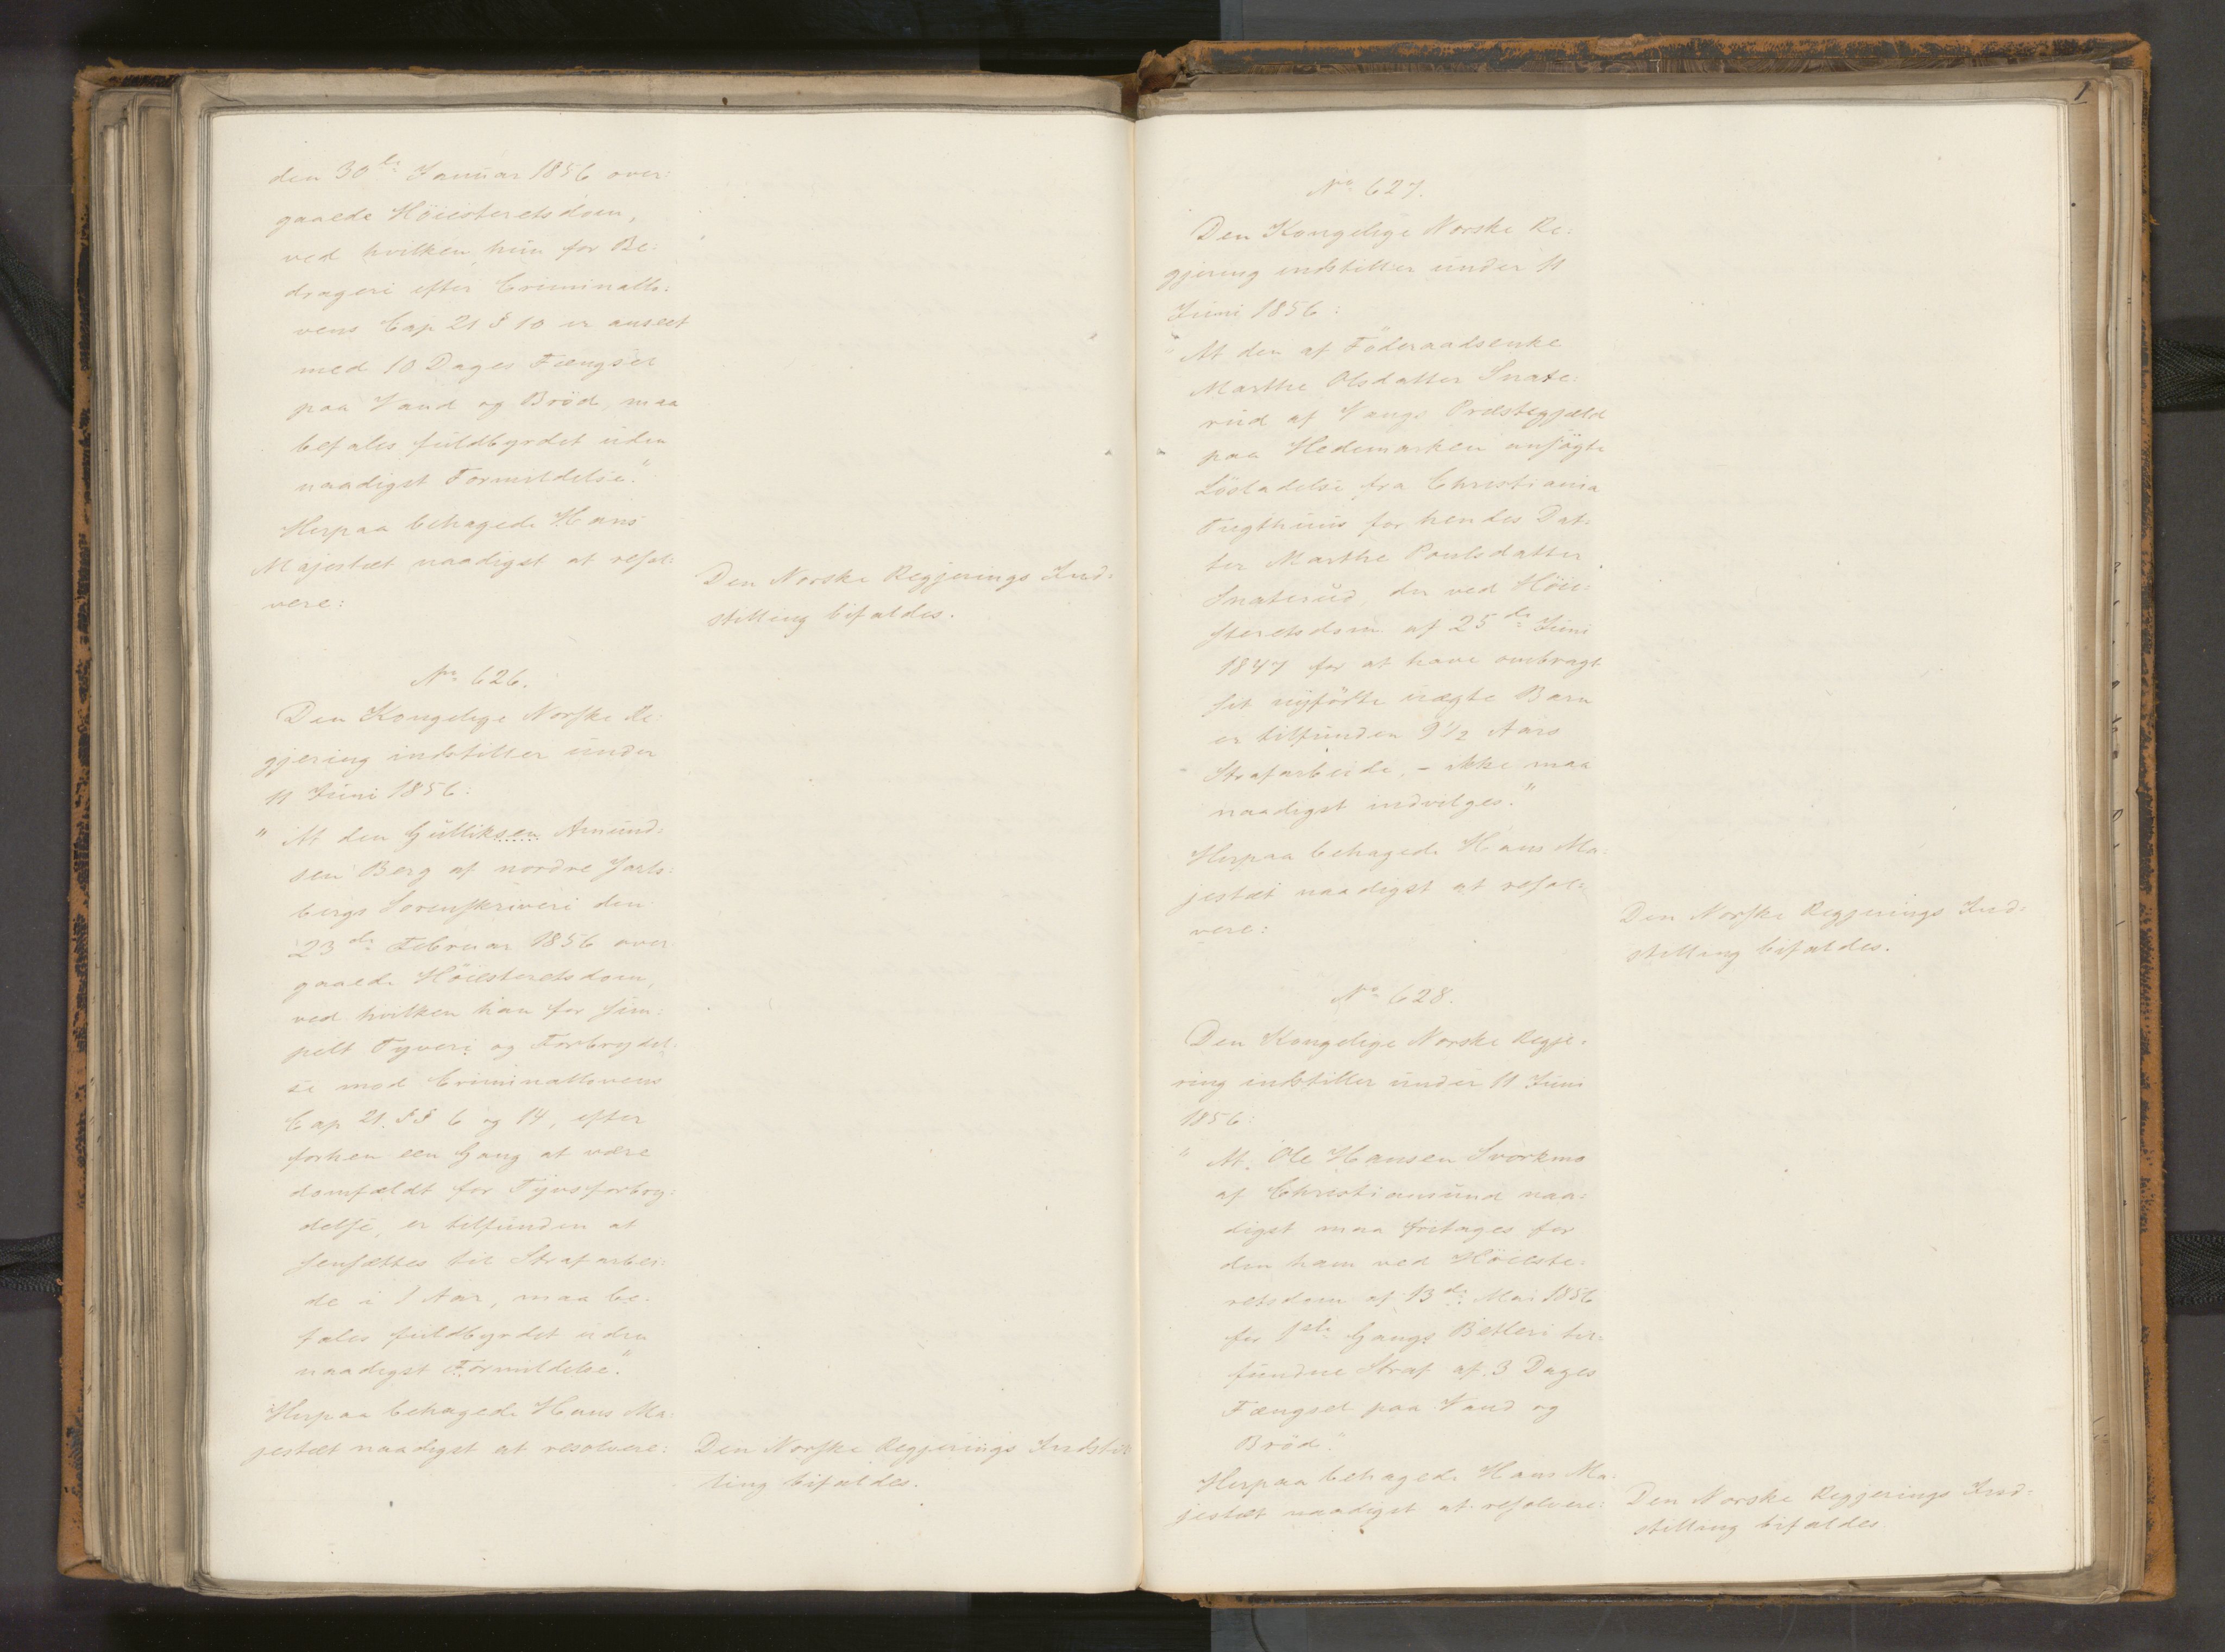 den 30te Januar 1856 over:
gaaede Höiesteretsdom,
ved hvilken hun for Be:
drageri efter Criminallo:
vens Cap 21 § 10 er anseet
med 10 Dages Fængsel
paa Vand og Bröd, maa
befales fuldbyrdet uden
naadigst Formildelse."
Herpaa behagede Hans
Majestæt naadigst at resol:
vere:
Den Norske Regjerings Ind:
stilling bifaldes.
No 626.
Den Kongelige Norske Re:
gjering indstiller under
11 Juni 1856:
" At den Gulliksen Amund:
sen Berg af nordre Jarls:
bergs Sorenskriveri den
23de Februar 1856 over
gaaede Höiesteretsdom,
ved hvilken han for sim:
pelt Tyveri og Forbrydel:
se mod Criminallovens
Cap 21. §§ 6 og 14, efter
forhen een Gang at være
domfældt for Tyvsforbry:
delse, er tilfunden at
hensættes til Strafarbei:
de i 1 Aar, maa be:
fales fuldbyrdet uden
naadigst Formildelse."
Herpaa behagede Hans Ma:
jestæt naadigst at resolvere:
Den Norske Regjerings Indstil
ling bifaldes.
No 627.
Den Kongelige Norske Re:
gjering indstiller under 11
Juni 1856:
" At den af Föderaadsenke
Marthe Olsdatter Snate:
rud af Vangs Præstegjæld
paa Hedemarken ansögte
Lösladelse fra Christiania
Tugthuus for hendes Dat:
ter Marthe Poulsdatter
Snaterud, der ved Höie:
steretsdom af 25de Juni
1847 for at have ombragt
sit nyfödte uægte Barn
er tilfunden 9 1/2 Aars
Strafarbeide, - ikke maa
naadigst indvilges."
Herpaa behagede Hans Ma:
jestæt naadigst at resol:
vere:
Den Norske Regjerings Ind:
stilling bifaldes.
No 628.
Den Kongelige Norske Regje:
ring indstiller under 11 Juni
1856:
" At Ole Hansen Svorkmo
af Christiansund naa:
digst maa fritages for
den ham ved Höieste:
retsdom af 13de Mai 1856
for 1ste Gangs Betleri til:
fundne Straf af 3 Dages
Fængsel paa Vand og
Bröd."
Herpaa behagede Hans Ma:
jestæt naadigst at resolvere:
Den Norske Regjerings Ind:
stilling bifaldes